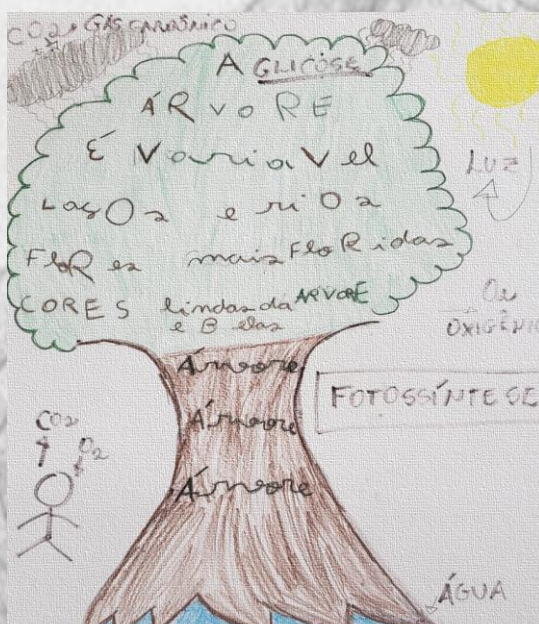 CO2 GÁS CARBÔNICO
A GLICOSE
ÁRVORE
É VariaVel
LagOs e riOs
FloRes mais FloRidas
CORES lindas da ARVORE
e Belas
Árvore
Árvore
Árvore
LUZ
OXIGÊNIO
FOTOSSÍNTESE
CO2
O2
ÁGUA